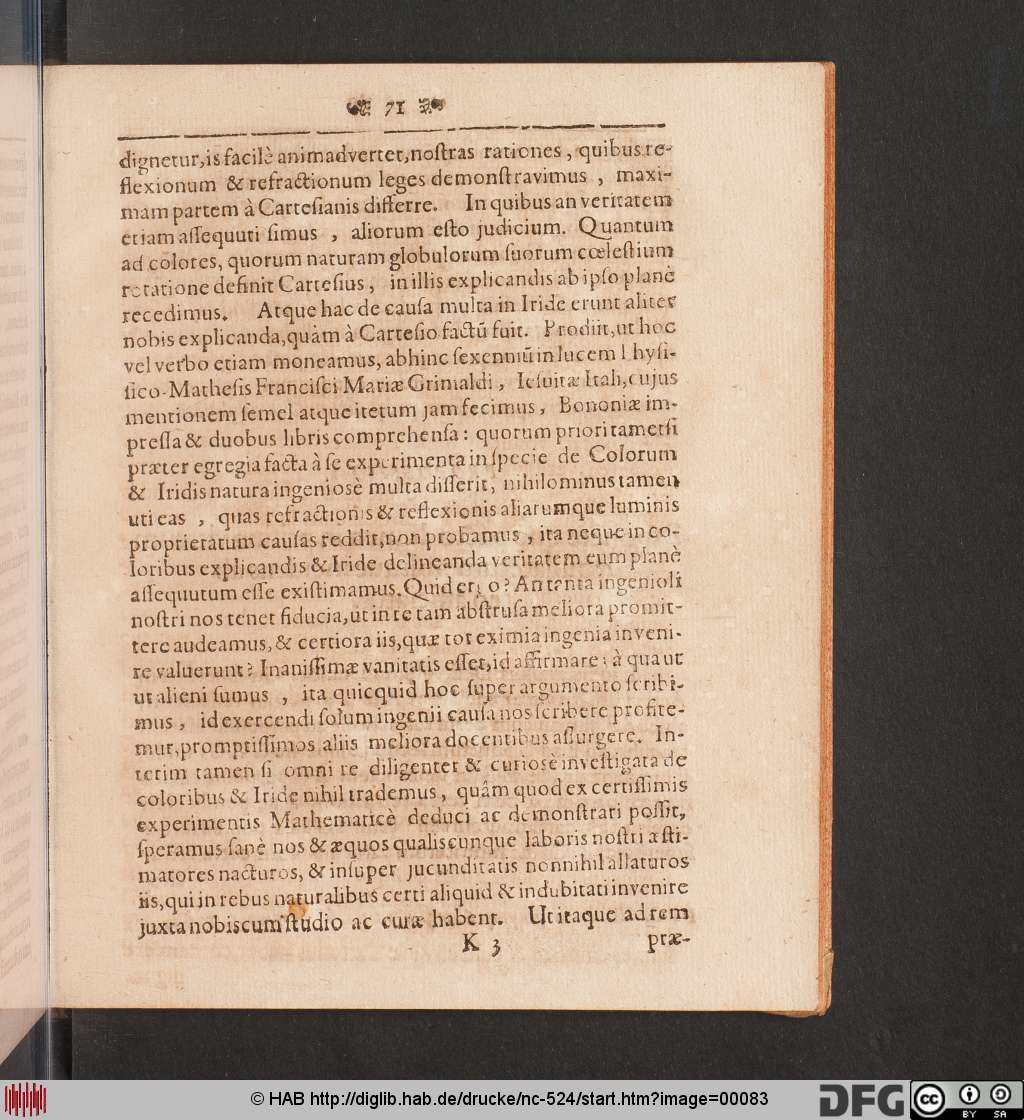 71
dignetur,is facilè animadvertet,nostras rationes, quibus re-
flexionum & refractionum leges demonstravimus, maxi-
mam partem à Cartesianis differre. In quibus an veritatem
etiam assequuti simus, aliorum esto judicium. Quantum
ad colores, quorum naturam globulorum suorum cœlestium
rotatione definit Cartesius, in illis explicandis ab ipso planè
recedimus. Atque hac de causa multa in Iride erunt aliter
nobis explicanda,quàm à Cartesio factū fuit. Prodiit,ut hoc
vel verbo etiam moneamus, abhinc sexenniū in lucem Physi-
sico-Mathesis Francisci Mariæ Grimaldi, Iesuitæ Itali,cujus
mentionem semel atque itetum jam fecimus, Bononiæ im-
pressa & duobus libris comprehensa: quorum priori tametsi
præter egregia facta à se experimenta in specie de Colorum
& Iridis natura ingeniosè multa disserit, nihilominus tamen
uti eas, quas refractionis & reflexionis aliarumque luminis
proprietatum causas reddit,non probamus, ita neque in co-
loribus explicandis & Iride delineanda veritatem eum planè
assequutum esse existimamus. Quid ergo? An tanta ingenioli
nostri nos tenet fiducia,ut in re tam abstrusa meliora promit-
tere audeamus,& certiora iis,quæ tot eximia ingenia inveni-
re valuerunt? Inanissimæ vanitatis esset,id affirmare: à qua ut
ut alieni sumus, ita quicquid hoc super argumento scribi-
mus, id exercendi solum ingenii causa nos scribere profite-
mur,promptissimos aliis meliora docentibus assurgere. In-
terim tamen si omni re diligenter & curiosè investigata de
coloribus & Iride nihil trademus, quâm quod ex certissimis
experimentis Mathematicè deduci ac demonstrari possit,
speramus sanè nos & æquos qualiscunque laboris nostri æsti-
matores nacturos, & insuper jucunditatis nonnihil allaturos
iis,qui in rebus naturalibus certi aliquid & indubitati invenire
juxta nobiscum studio ac curæ habent. Ut itaque ad rem
K 3 præ-
© HAB http://diglib.hab.de/drucke/nc-524/start.htm?image=00083
DFG
cc BY SA